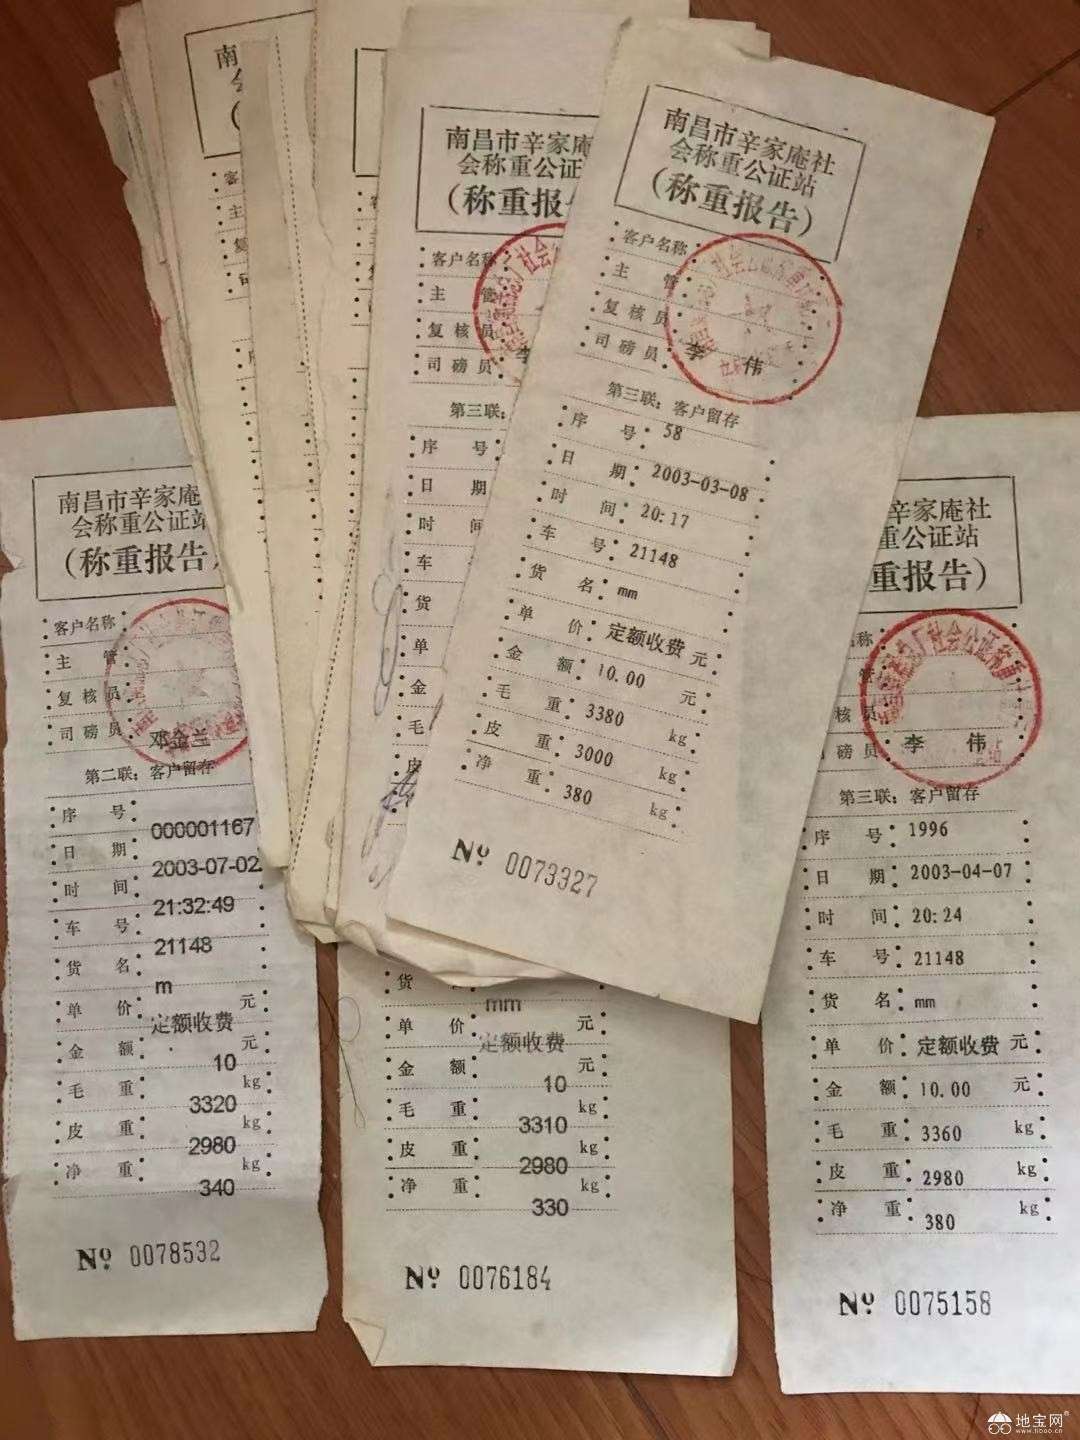 南
会
(
南昌市辛家庵
会称重公证
(称重报
客户名称
主 管
复核员
司磅员
第三联:
序 号
日 期
时 间
车
货
单
金
毛
皮
南昌市辛家庵社
会称重公证站
(称重报告)
客户名称
主 管
复核员
司磅员 李 伟
第三联: 客户留存
序 号: 58
日 期: 2003-03-08
时 间: 20:17
车 号: 21148
货 名: mm
单 价: 定额收费 元
金 额: 10.00 元
毛 重: 3380 kg
皮 重: 3000 kg
净 重: 380 kg
Nº 0073327
南昌市辛家庵
会称重公证站
(称重报告)
客户名称
主 管
复核员
司磅员 邓金兰
第二联: 客户留存
序 号: 000001167
日 期: 2003-07-02
时 间: 21:32:49
车 号: 21148
货 名: m
单 价: 定额收费 元
金 额: 10 元
毛 重: 3320 kg
皮 重: 2980 kg
净 重: 340 kg
Nº 0078532
货 mm
单 价: 定额收费 元
金 额: 10 元
毛 重: 3310 kg
皮 重: 2980 kg
净 重: 330 kg
Nº 0076184
辛家庵社
重公证站
重报告)
称
管
核员
磅员: 李 伟
第三联: 客户留存
序 号: 1996
日 期: 2003-04-07
时 间: 20:24
车 号: 21148
货 名: mm
单 价: 定额收费 元
金 额: 10.00 元
毛 重: 3360 kg
皮 重: 2980 kg
净 重: 380 kg
Nº 0075158
地宝网
www.tiboo.cn